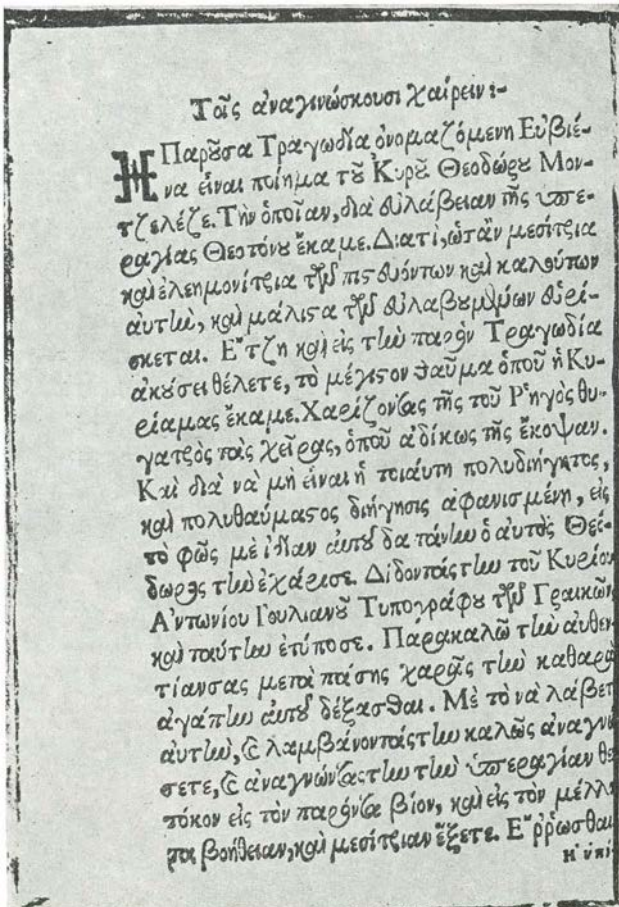 Τοῖς ἀναγινώσκουσι χαίρειν :-
Ἡ Παροῦσα Τραγωδία ὀνομαζόμενη Εὐβιέ-
να εἶναι ποίημα τοῦ Κυροῦ Θεοδώρου Μον-
τζελέζε. Τὴν ὁποῖαν, διὰ εὐλάβειαν τῆς ὑπε-
ραγίας Θεοτόκου ἔκαμε. Διατὶ, ὡσὰν μεσίτρια
καὶ ἐλεημονίτρια τῶν πιστευόντων καὶ καλούντων
αὐτὴν, καὶ μάλιστα τῶν εὐλαβουμένων εὑρί-
σκεται. Ἔτζη καὶ εἰς τὴν παρὸν Τραγωδία
ἀκούσει θέλετε, τὸ μέγιστον θαῦμα ὁποῦ ἡ Κυ-
ρίαμας ἔκαμε. Χαρίζοντας τῆς τοῦ Ῥηγὸς θυ-
γατρὸς τὰς χεῖρας, ὁποῦ ἀδίκως τῆς ἔκοψαν.
Καὶ διὰ νὰ μὴ εἶναι ἡ τοιαύτη πολυδιήγητος,
καὶ πολυθαύμαστος διήγησις ἀφανισμένη, εἰς
τὸ φῶς μὲ ἰδίαν αὐτοῦ δαπάνην ὁ αὐτὸς Θεό-
δωρος τὴν ἐχάρισε. Δίδοντάς την τοῦ Κυρίου
Ἀντωνίου Ἰουλιανοῦ Τυπογράφου τῶν Γραικῶν,
καὶ ταύτην ἐτύποσε. Παρακαλῶ τὴν αὐθεν
τίανσας μετὰ πάσης χαρᾶς τὴν καθαρὰ
ἀγάπην αὐτοῦ δέξασθαι. Μὲ τὸ νὰ λάβετ
αὐτὴν, καὶ λαμβάνοντάς την καλῶς ἀναγνώ
σετε, καὶ ἀναγνώντας την τὴν ὑπεραγίαν θε
τόκον εἰς τὸν παρόντα βίον, καὶ εἰς τὸν μέλλο
τα βοήθειαν, καὶ μεσίτριαν ἕξετε. Ἔρρωσθαι
Η ὑπό-